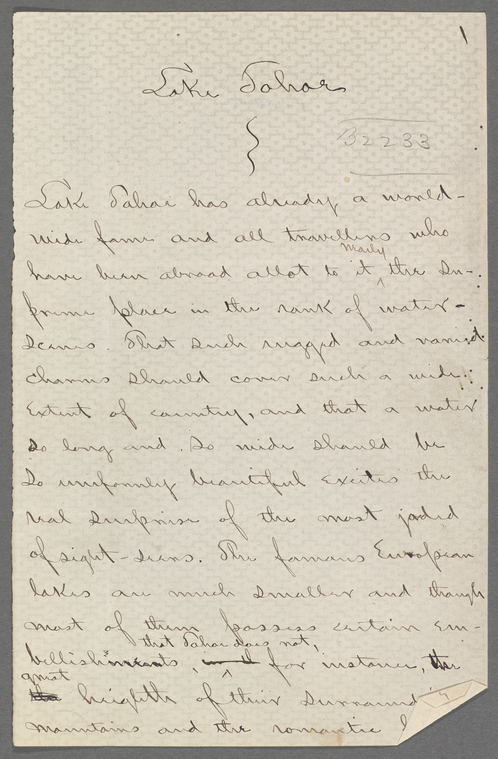 1
Lake Tahoe
B2233
Lake Tahoe has already a world-
wide fame and all travellers who
nearly
have been abroad allot to it the Su-
preme place in the rank of water-
scenes. That such rugged and varied
charms should cover such a wide
extent of country, and that a water
so long and so wide should be
so uniformly beautiful excites the
real surprise of the most jaded
of sight-seers. The famous European
lakes are much smaller and though
most of them possess certain em-
that Tahoe does not,
bellishments, for instance, the
great
heighth of their surround
mountains and the romantic